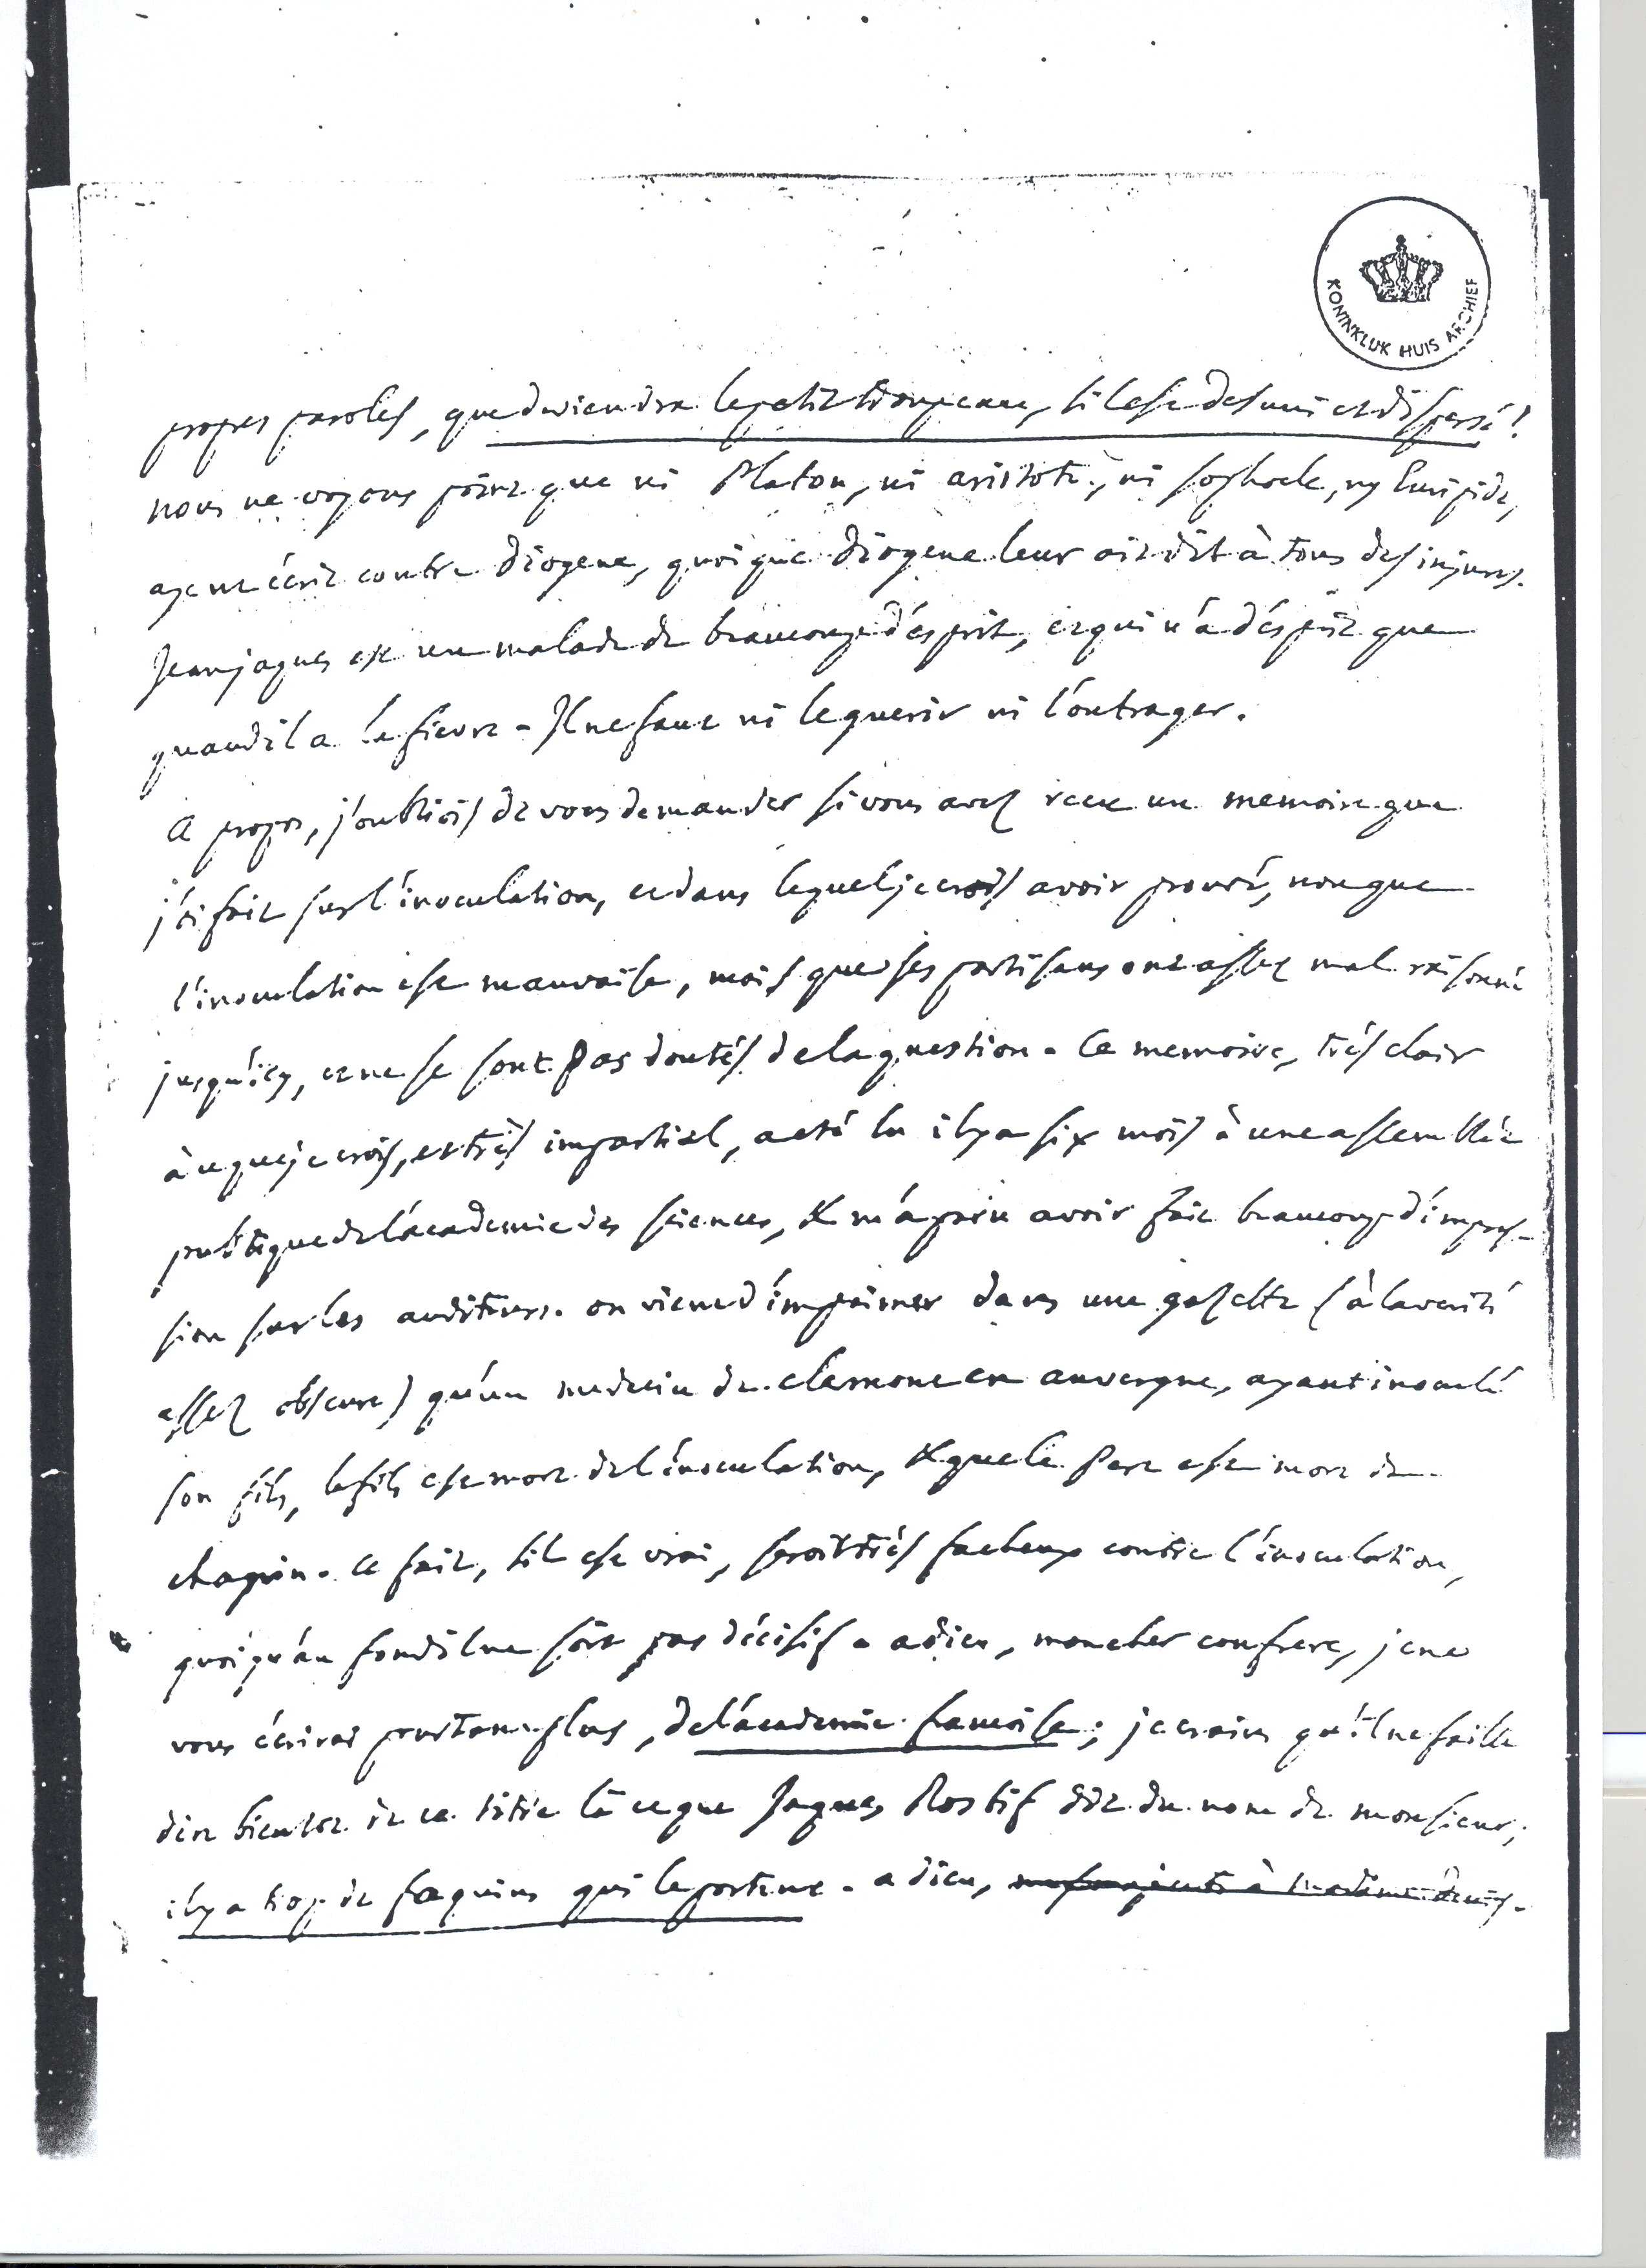 KONINKLIJK HUIS ARCHIEF
propres paroles, que deviendra le petit troupeau, s'il est desuni et dispersé!
nous ne voyons point que ni Platon, ni aristote, ni sophocle, ny Euripide,
ayent écrit contre Diogene, quoique Diogene leur ait dit à tous des injures.
Jean jaques est un malade de beaucoup d'ésprit, et qui n'a d'ésprit que
quand il a la fievre. Il ne faut ni le guerir ni l'outrager.
A propos, j'oubliois de vous demander si vous avez receu un memoire que
j'ai fait sur l'inoculation, et dans lequel je crois avoir prouvé, non que
l'inoculation est mauvaise, mais que ses partisans ont assez mal raisonné
jusqu'icy, et ne se sont pas doutés de la question. Ce memoire, trés clair
à ce que je crois, et très impartial, a eté lu il y a six mois à une assemblée
publique de l'académie des sciences, & m'a paru avoir fait beaucoup d'impres-
sion sur les auditeurs. on vient d'imprimer dans une gazette (à la verité
assez obscure) qu'un medecin de clermont en auvergne, ayant inoculé
son fils, le fils est mort de l'inoculation, & que le Pere est mort de
chagrin. ce fait, s'il est vrai, seroit trés facheux contre l'inoculation,
quoiqu'au fond il ne soit pas décisif. adieu, mon cher confrere, je ne
vous écrirai pourtant plus, de l'académie françoise; je crains qu'il ne faille
dire bientot de ce titre là ce que Jaques Rosbif dit du nom de monsieur;
il y a trop de faquins qui le portent. adieu, à madame denis.